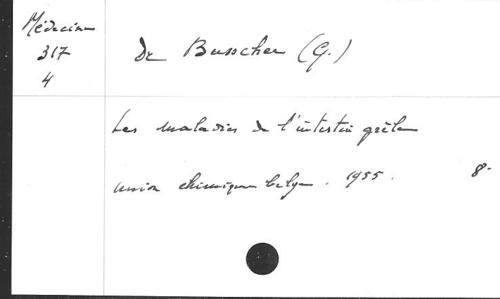 Médecine
317
4
De Busscher (G.)
Les maladies de l'intestin grêle
union chimique belge. 1955. 8°